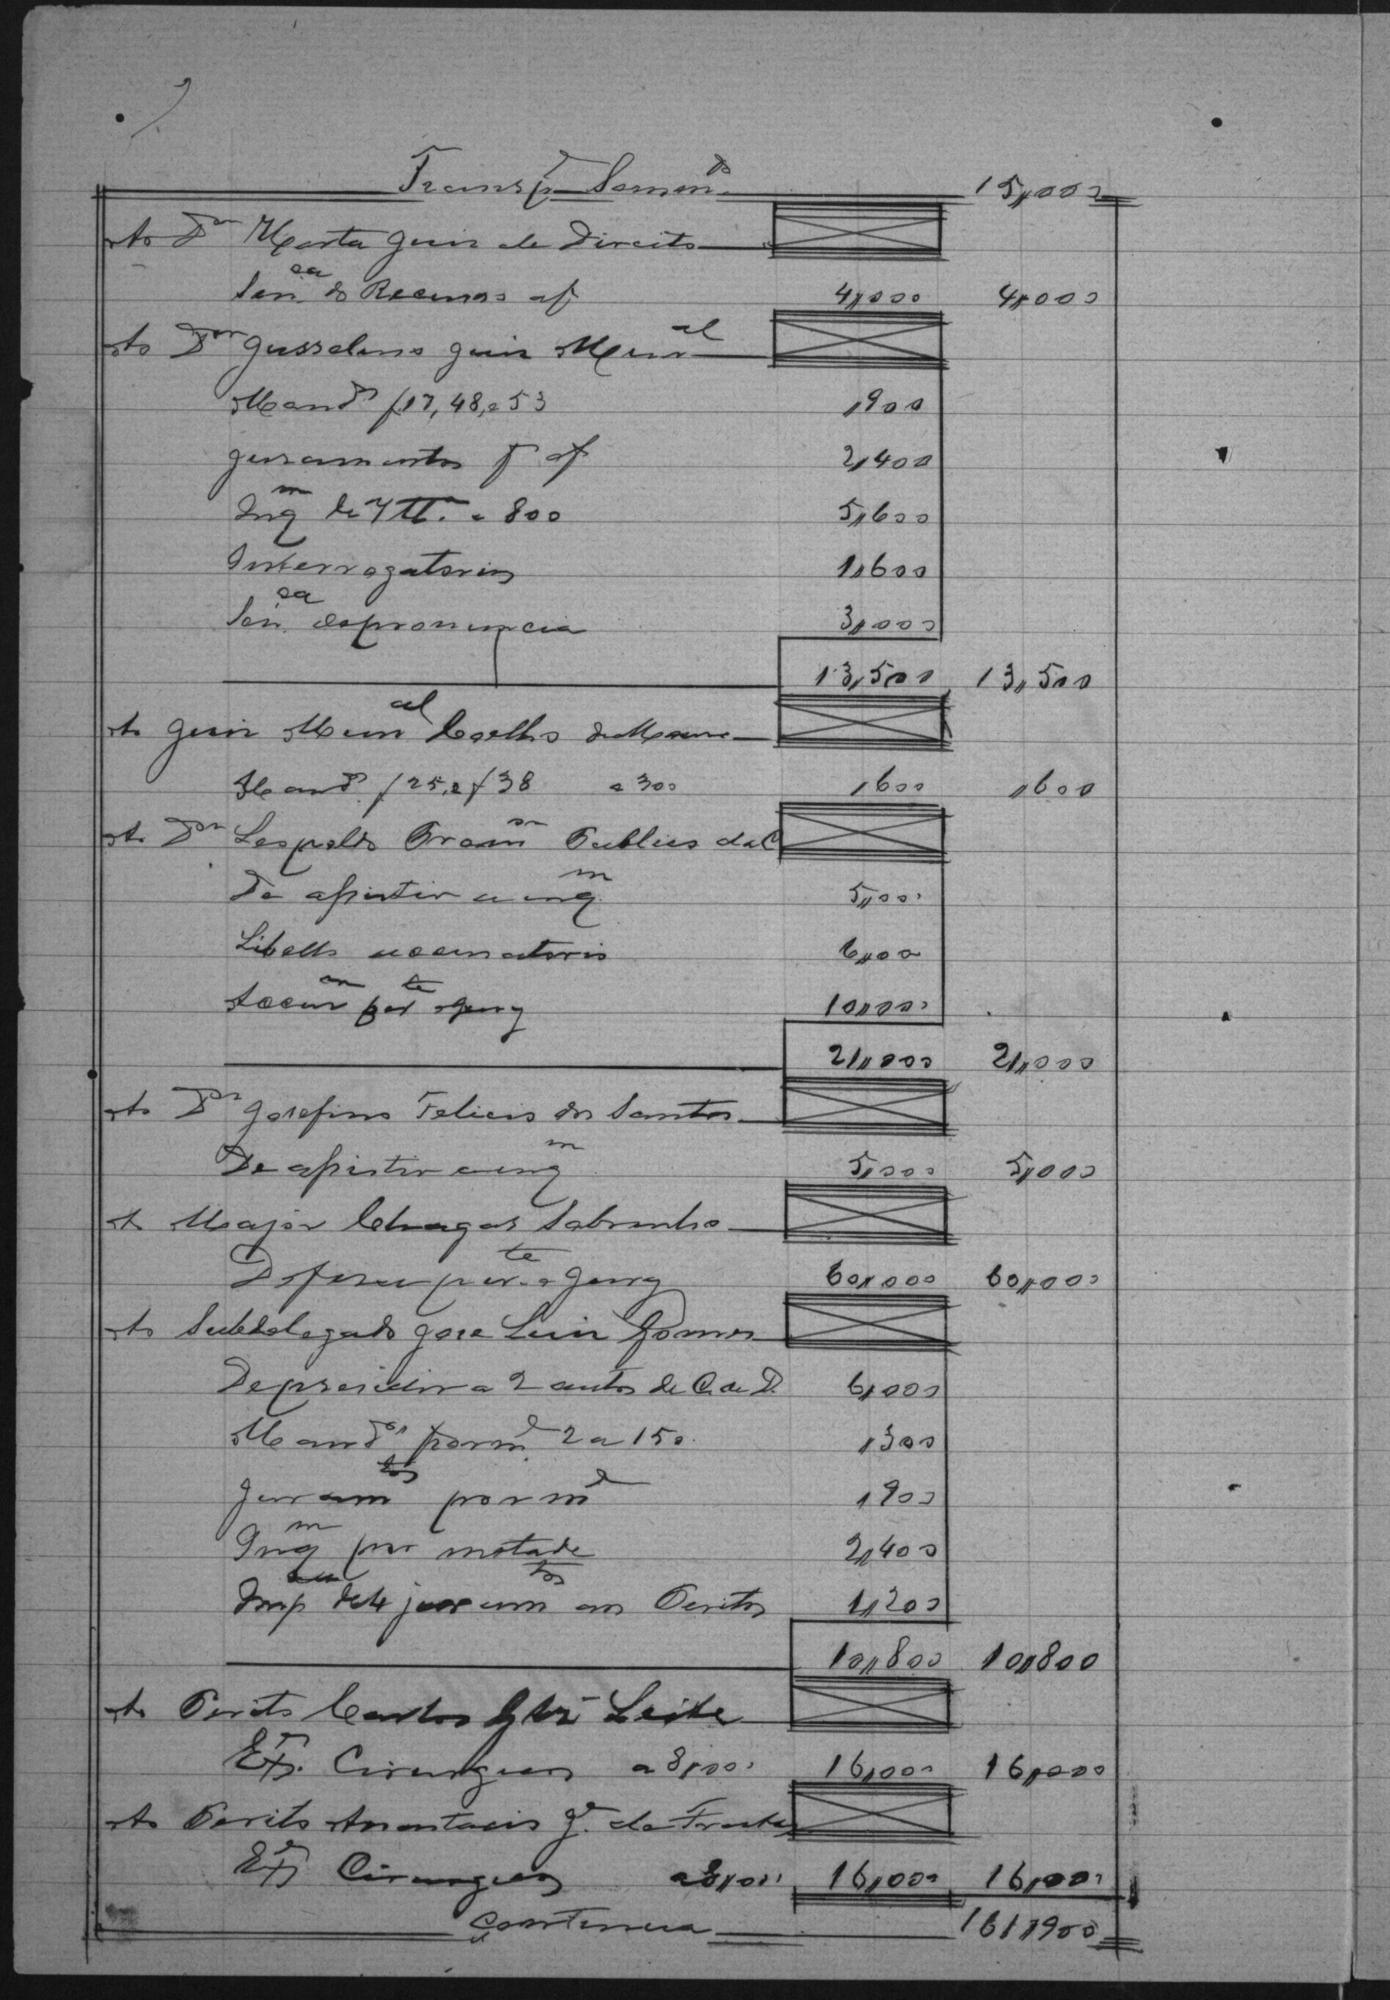 Transp.e Somm.do 15,000
Ao Dr Horta Juiz de Direito
Senca do Recurso af 4,000 4,000
Ao Dor Jusselino Juiz Munal
Mando f 17, 48, e 53 ,900
Juramentos f af 2,400
Inqm de 7 TTas a 800 5,600
Interrogatorios 1,600
Senca despronuncia 3,000
13,500 13,500
Ao Juiz Munal Coelho de Moura
Mando f 25, e f 38 a 300 ,600 ,600
Ao Dor Leopoldo Promor Publico da C
De assistir a inqm 5,000
Libello accusatorio 6,000
Accusam perte o Jury 10,000
21,000 21,000
Ao Dr Josefino Felicio dos Santos
De assistir a inqm 5,000 5,000
Ao Major Chagas Sobrinho
Defesa per.te o Jury 60,000 60,000
Ao Subdelegado Jose Luiz Gomes
De presidir a 2 autos de C. de D. 6,000
Mandos por me 2 a 150 ,300
Juramtos por me ,900
Inqm por metade 2,400
de 4 juramtos aos Peritos 1,200
10,800 10,800
Ao Perito Leite
Cirurgicos a 8,000 16,000 16,000
Ao Perito Anastacio J.e da
Cirurgicos a 8,000 16,000 16,000
Continua 161,900